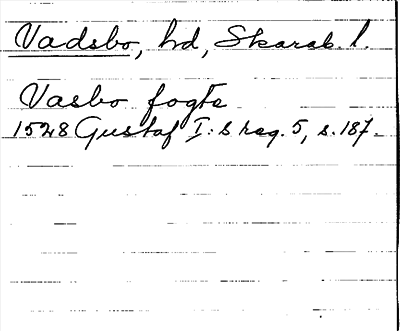 Vadsbo, hd, Skarab. l.
Vasbo fogte
1528 Gustaf I:s reg. 5, s. 187.